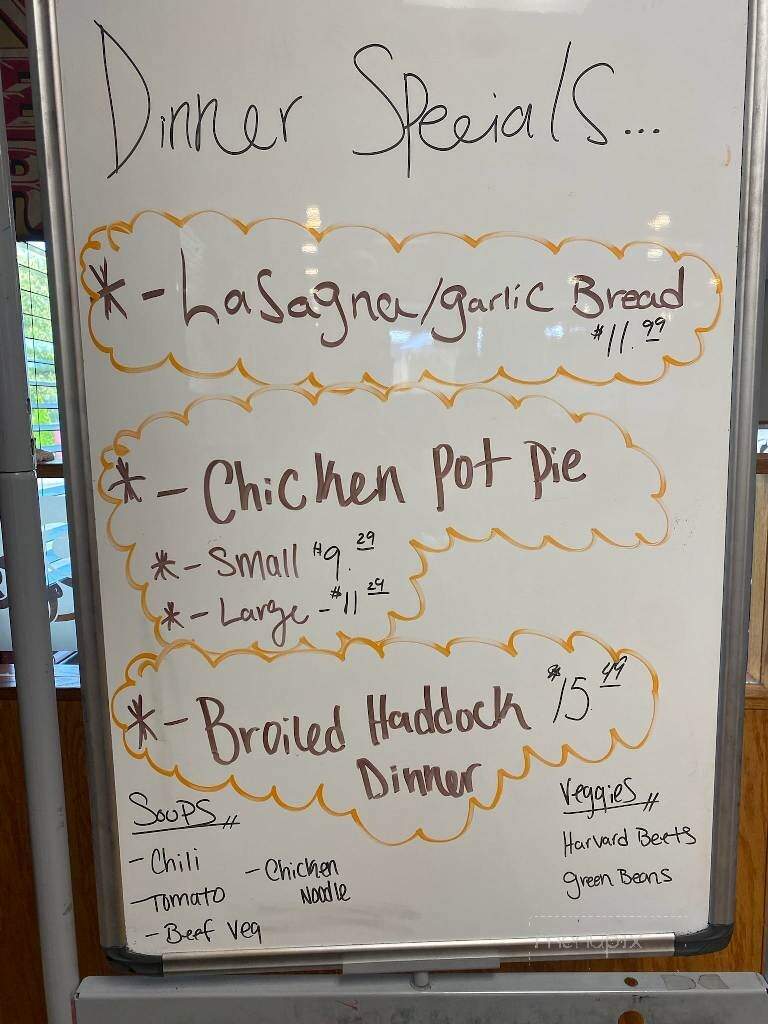 Dinner Specials...
* - Lasagna/garlic Bread
$11.99
* - Chicken Pot Pie
* - Small $9.29
* - Large - $11.29
* - Broiled Haddock $15.49
Dinner
Soups
- Chili
- Chicken
Noodle
- Tomato
- Beef Veg
Veggies
Harvard Beets
green Beans